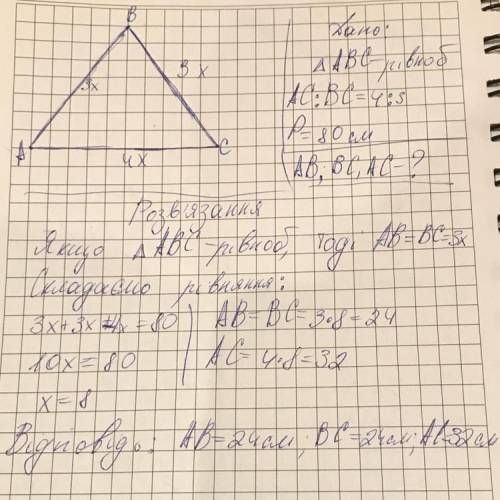 B
3x
3x
A
4x
C
Дано:
△ABC рівноб
AC:BC=4:3
P=80см
AB; BC, AC-?
Розв'язання
Якщо △ABC-рівноб, тоді AB=BC=3x
Складаємо рівняння:
3x+3x+4x=80
10x=80
x=8
AB=BC=3·8=24
AC=4·8=32
Відповідь: AB=24см; BC=24см; AC=32см